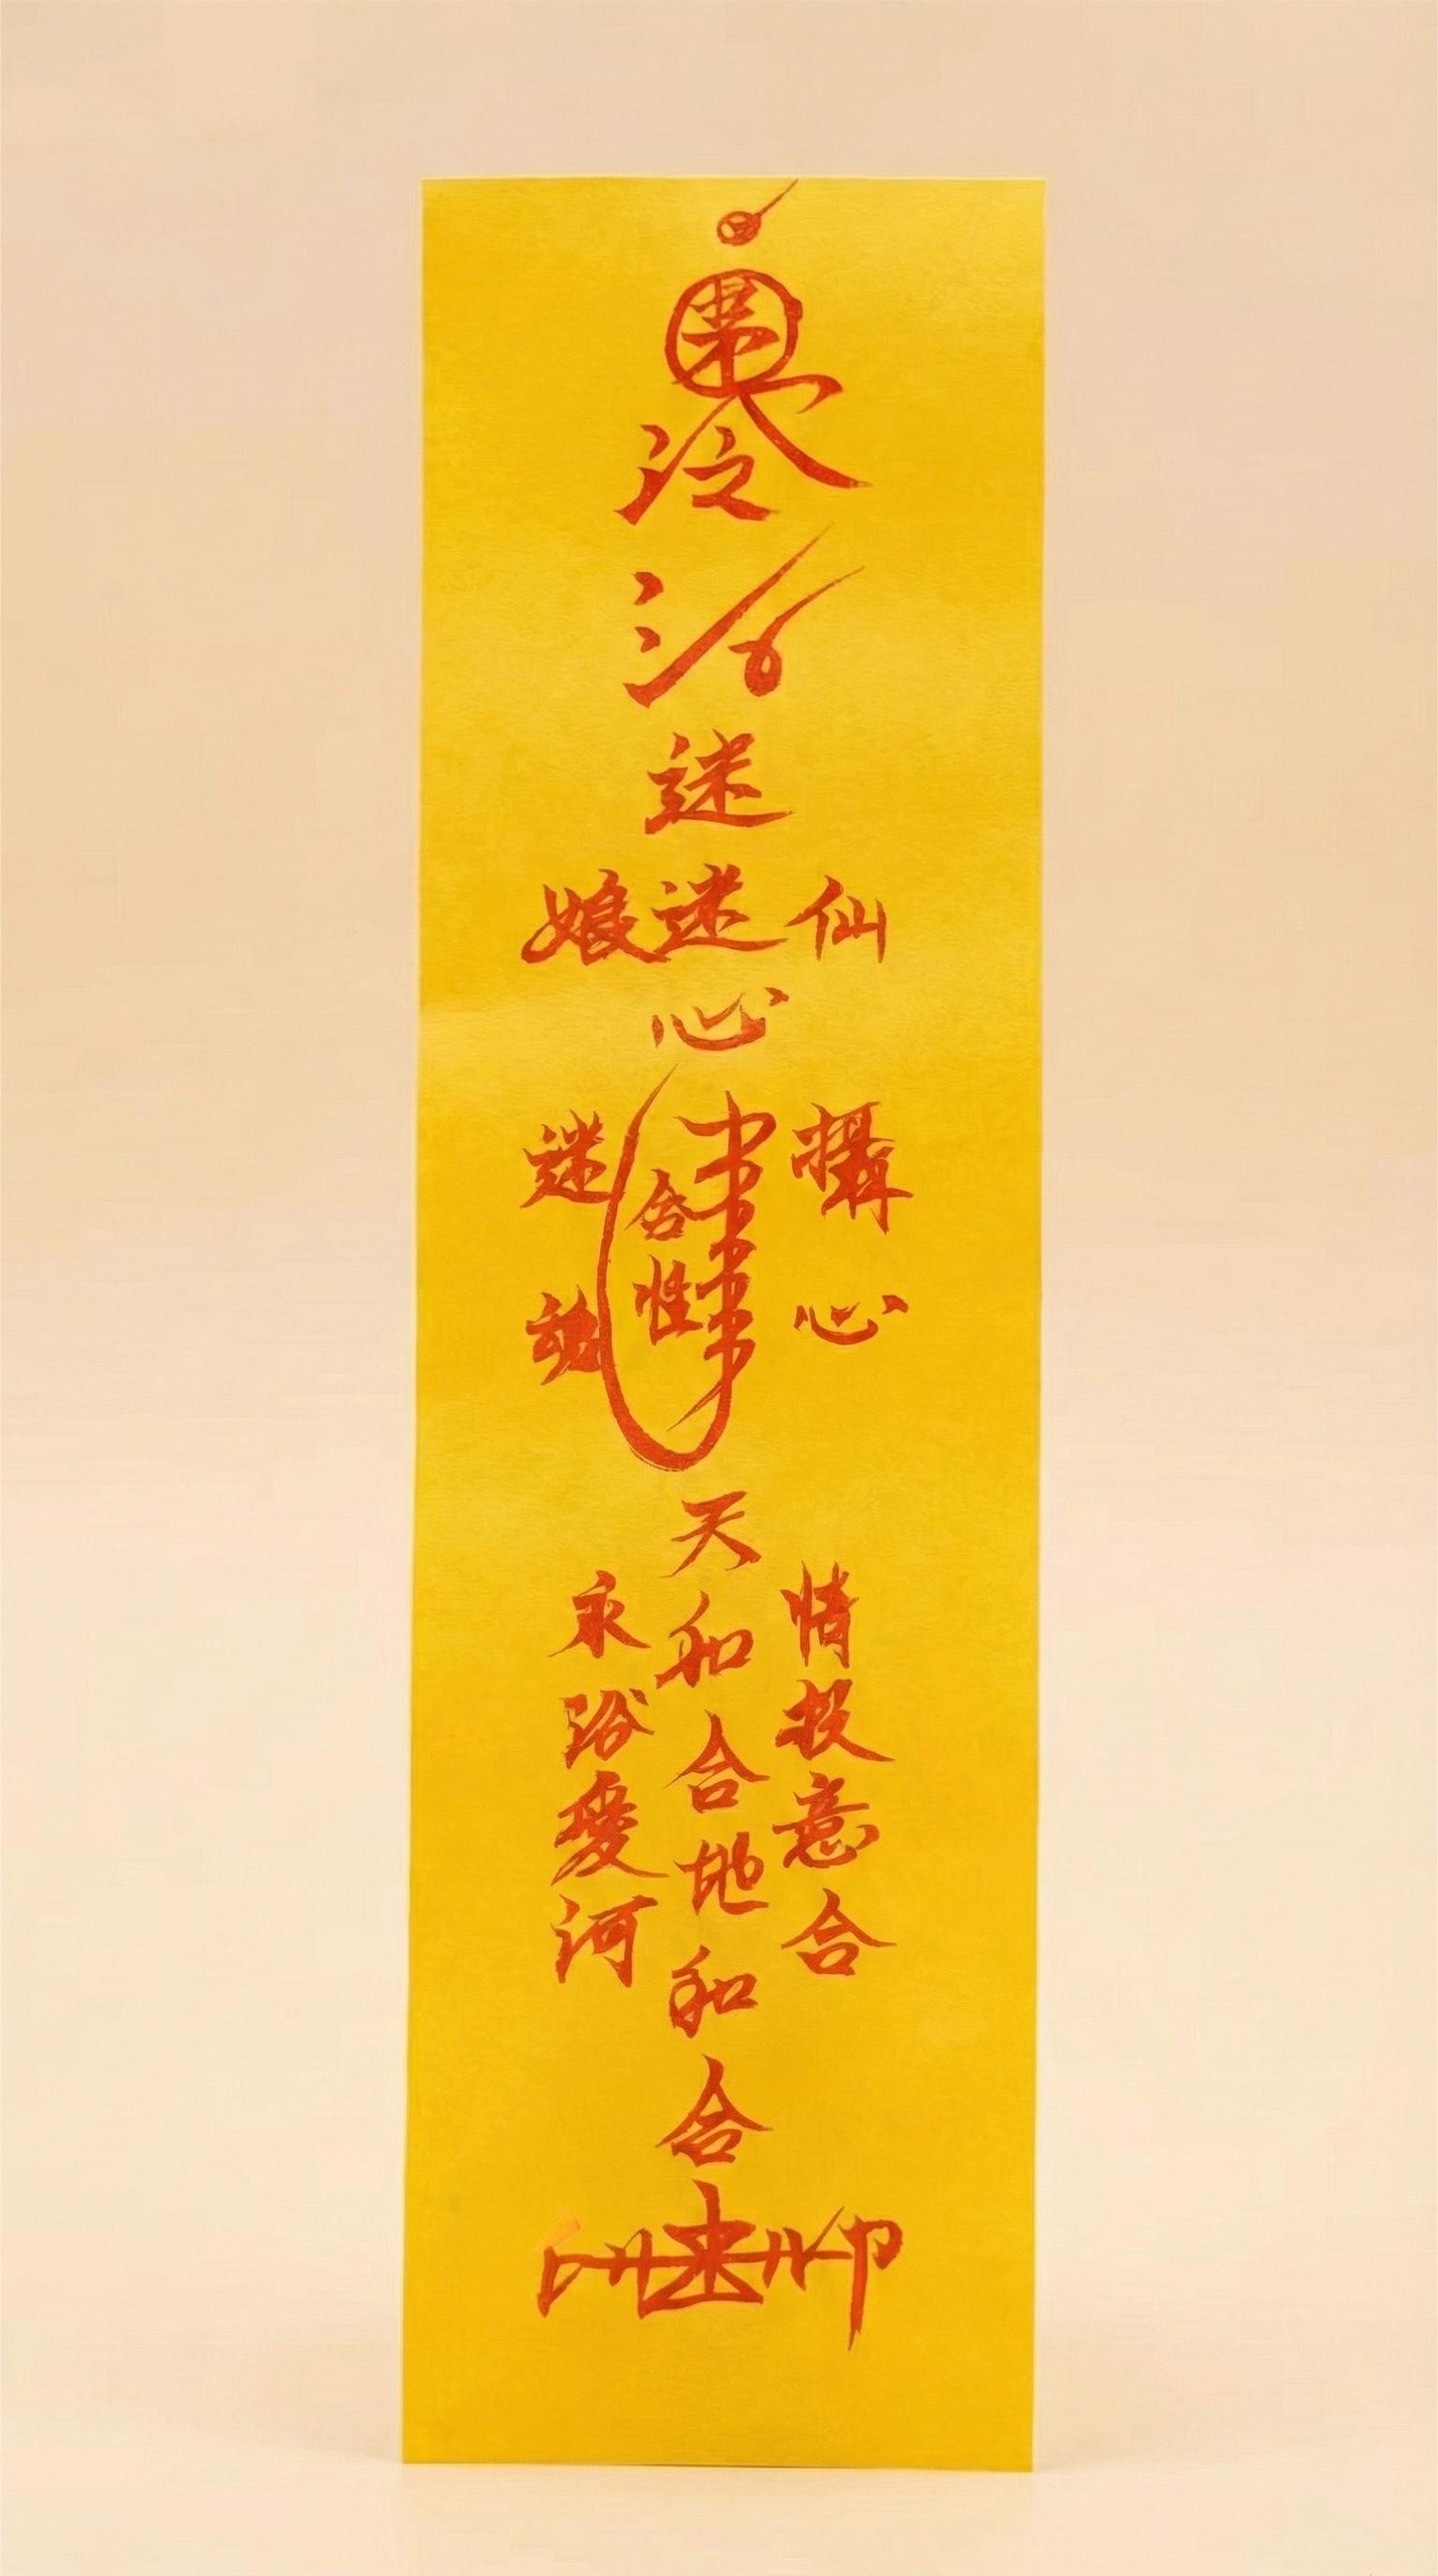 迷
仙迷娘
心
攝心
合性
迷魂
天和合地和合
情投意合
永浴愛河
印